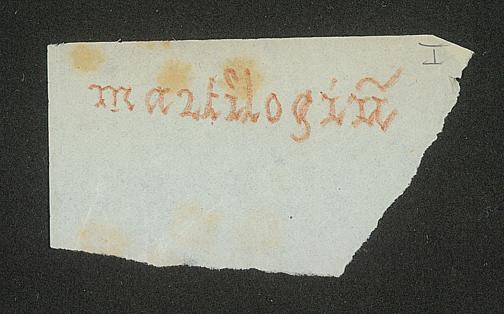 I
martilogiū